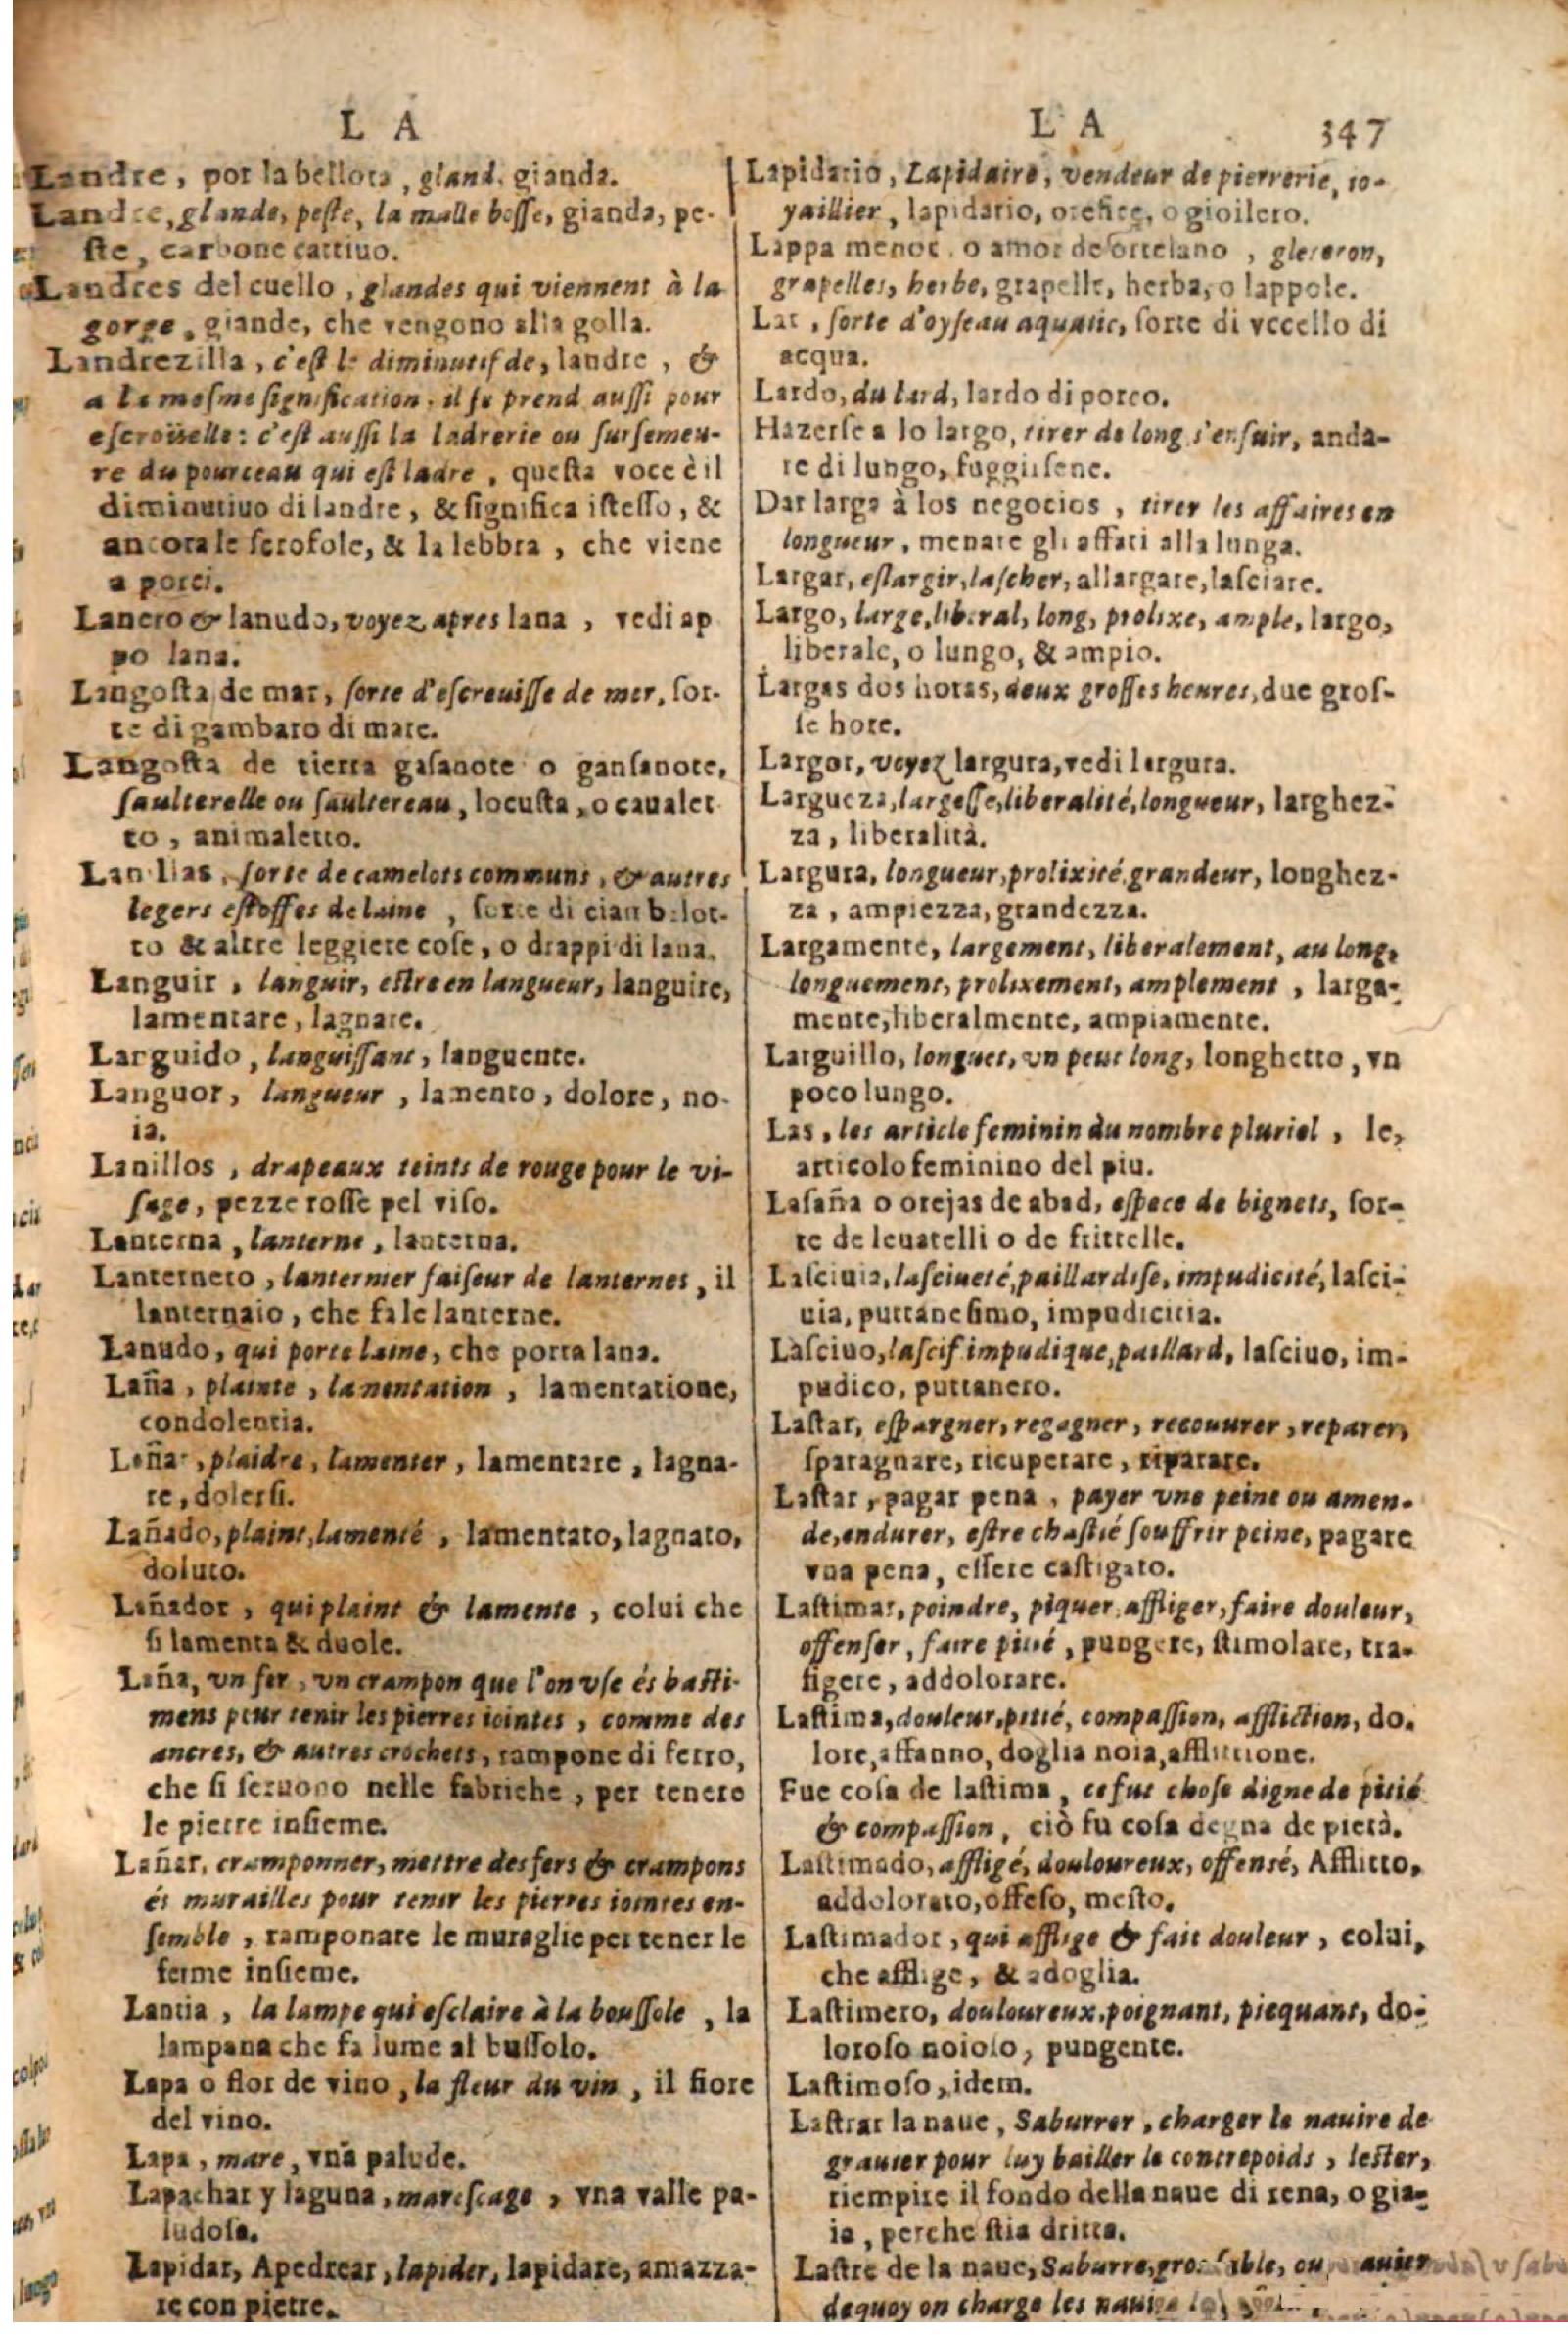 L A
Landre, por la bellota, gland. gianda.
Landre, glande, peste, la malle bosse, gianda, pe-
ste, carbone cattiuo.
Landres del cuello, glandes qui viennent à la
gorge, giande, che vengono alla golla.
Landrezilla, c'est le diminutif de, landre, &
a la mesme signification, il se prend aussi pour
escroüelle: c'est aussi la ladrerie ou sursemeu-
re du pourceau qui est ladre, questa voce è il
diminutiuo di landre, & significa istesso, &
ancora le scrofole, & la lebbra, che viene
a porci.
Lanero & lanudo, voyez apres lana, vedi ap
po lana.
Langosta de mar, sorte d'escreuisse de mer, sor-
te di gambaro di mare.
Langosta de tierra gasanote o gansanote,
saulterelle ou saultereau, locusta, o caualet
to, animaletto.
Lanillas, sorte de camelots communs, & autres
legers estoffes de laine, sorte di ciambelot-
to & altre leggiere cose, o drappi di lana.
Languir, languir, estre en langueur, languire,
lamentare, lagnare.
Larguido, languissant, languente.
Languor, langueur, lamento, dolore, no-
ia.
Lanillos, drapeaux teints de rouge pour le vi-
sage, pezze rosse pel viso.
Lanterna, lanterne, lanterna.
Lanternero, lanternier faiseur de lanternes, il
lanternaio, che fa le lanterne.
Lanudo, qui porte laine, che porta lana.
Laña, plainte, lamentation, lamentatione,
condolentia.
Lañar, plaidre, lamenter, lamentare, lagna-
re, dolersi.
Lañado, plaint, lamenté, lamentato, lagnato,
doluto.
Lañador, qui plaint & lamente, colui che
si lamenta & duole.
Laña, vn fer, vn crampon que l'on vse és basti-
mens pour tenir les pierres iointes, comme des
ancres, & autres crochets, rampone di ferro,
che si seruono nelle fabriche, per tenere
le pietre insieme.
Lañar, cramponner, mettre des fers & crampons
és murailles pour tenir les pierres iointes en-
semble, ramponare le muraglie per tener le
ferme insieme.
Lantia, la lampe qui esclaire à la boussole, la
lampana che fa lume al bussolo.
Lapa o flor de vino, la fleur du vin, il fiore
del vino.
Lapa, mare, vna palude.
Lapachar y laguna, marescage, vna valle pa-
ludosa.
Lapidar, Apedrear, lapider, lapidare, amazza-
re con pietre.
L A 347
Lapidario, Lapidaire, vendeur de pierrerie, io-
yaillier, lapidario, orefice, o gioilero.
Lappa menor, o amor de ortelano, gleteron,
grapelles, herbe, grapelle, herba, o lappole.
Lar, sorte d'oyseau aquatic, sorte di vccello di
acqua.
Lardo, du lard, lardo di porco.
Hazerse a lo largo, tirer de long s'enfuir, anda-
re di lungo, fuggirsene.
Dar larga à los negocios, tirer les affaires en
longueur, menare gli affari alla lunga.
Largar, eslargir, lascher, allargare, lasciare.
Largo, large, liberal, long, prolixe, ample, largo,
liberale, o lungo, & ampio.
Largas dos horas, deux grosses heures, due gros-
se hore.
Largor, voyez largura, vedi largura.
Largueza, largesse, liberalité, longueur, larghez-
za, liberalità.
Largura, longueur, prolixité, grandeur, longhez-
za, ampiezza, grandezza.
Largamente, largement, liberalement, au long,
longuement, prolixement, amplement, larga-
mente, liberalmente, ampiamente.
Larguillo, longuet, vn peut long, longhetto, vn
poco lungo.
Las, les article feminin du nombre pluriel, le,
articolo feminino del piu.
Lasaña o orejas de abad, espece de bignets, sor-
te de leuatelli o de frittelle.
Lasciuia, lasciueté, paillardise, impudicité, lasci-
uia, puttanesimo, impudicitia.
Lasciuo, lascif impudique, paillard, lasciuo, im-
pudico, puttanero.
Lastar, espargner, regagner, recouurer, reparer,
sparagnare, ricuperare, riparare.
Lastar, pagar pena, payer vne peine ou amen-
de, endurer, estre chastié souffrir peine, pagare
vna pena, essere castigato.
Lastimar, poindre, piquer, affliger, faire douleur,
offenser, faire pitié, pungere, stimolare, tra-
figere, addolorare.
Lastima, douleur, pitié, compassion, affliction, do-
lore, affanno, doglia noia, afflittione.
Fue cosa de lastima, ce fut chose digne de pitié
& compassion, ciò fu cosa degna de pietà.
Lastimado, affligé, douloureux, offensé, Afflitto,
addolorato, offeso, mesto.
Lastimador, qui afflige & fait douleur, colui,
che afflige, & adoglia.
Lastimero, douloureux, poignant, piequant, do-
loroso noioso, pungente.
Lastimoso, idem.
Lastrar la naue, Saburrer, charger le nauire de
grauier pour luy bailler le contrepoids, lester,
riempire il fondo della naue di rena, o gia-
ia, perche stia dritta.
Lastre de la naue, Saburre, gros sable, ou
dequoy on charge les